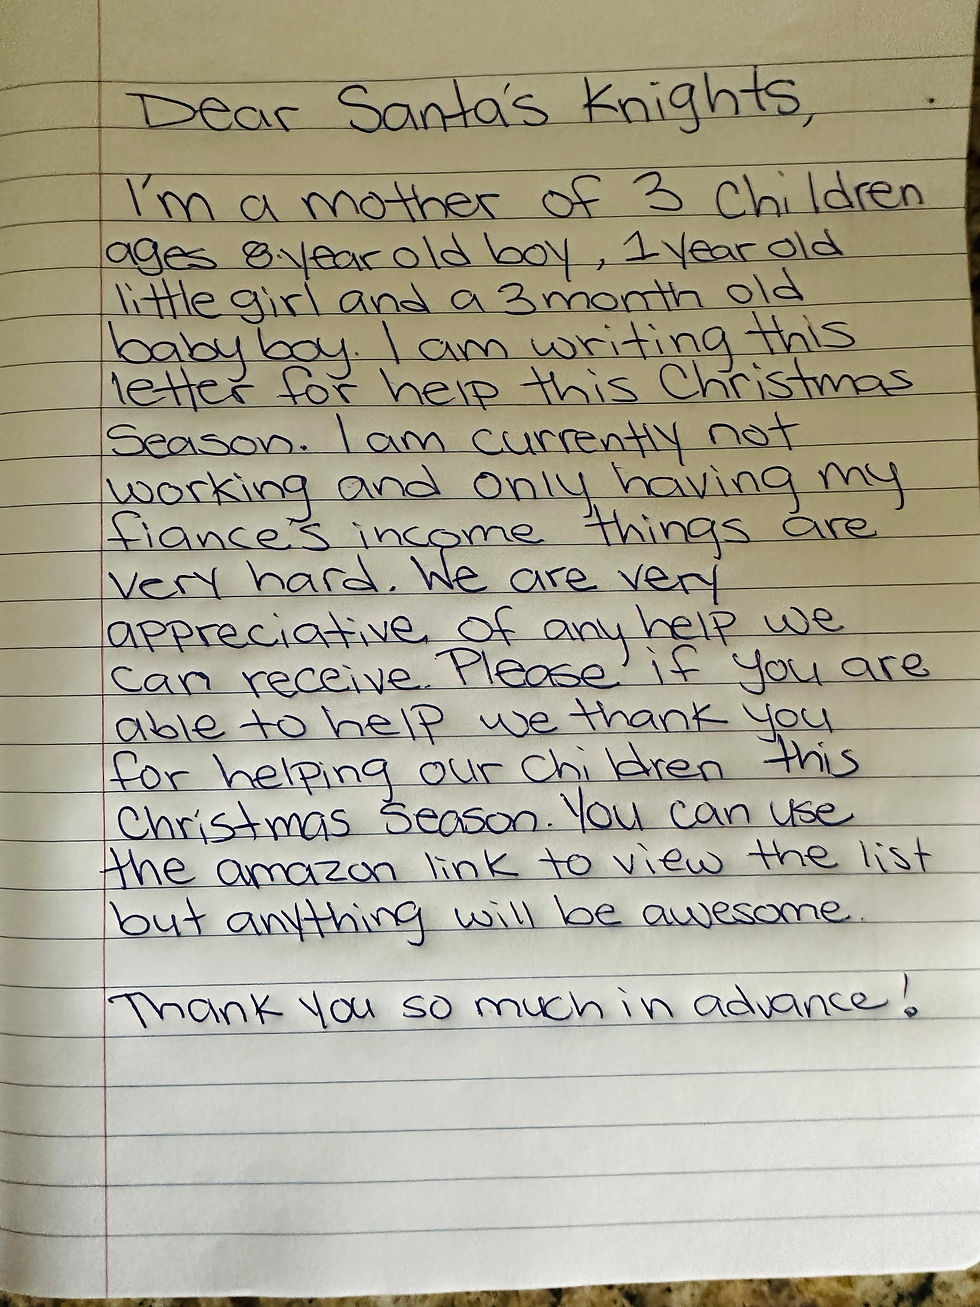 Dear Santa's Knights,
I'm a mother of 3 Children
ages 8-year old boy, 1 year old
little girl and a 3 month old
baby boy. I am writing this
letter for help this Christmas
Season. I am currently not
working and only having my
fiance's income things are
very hard. We are very
appreciative of any help we
can receive. Please if you are
able to help we thank you
for helping our children this
Christmas Season. You can use
the amazon link to view the list
but anything will be awesome.
Thank you so much in advance!